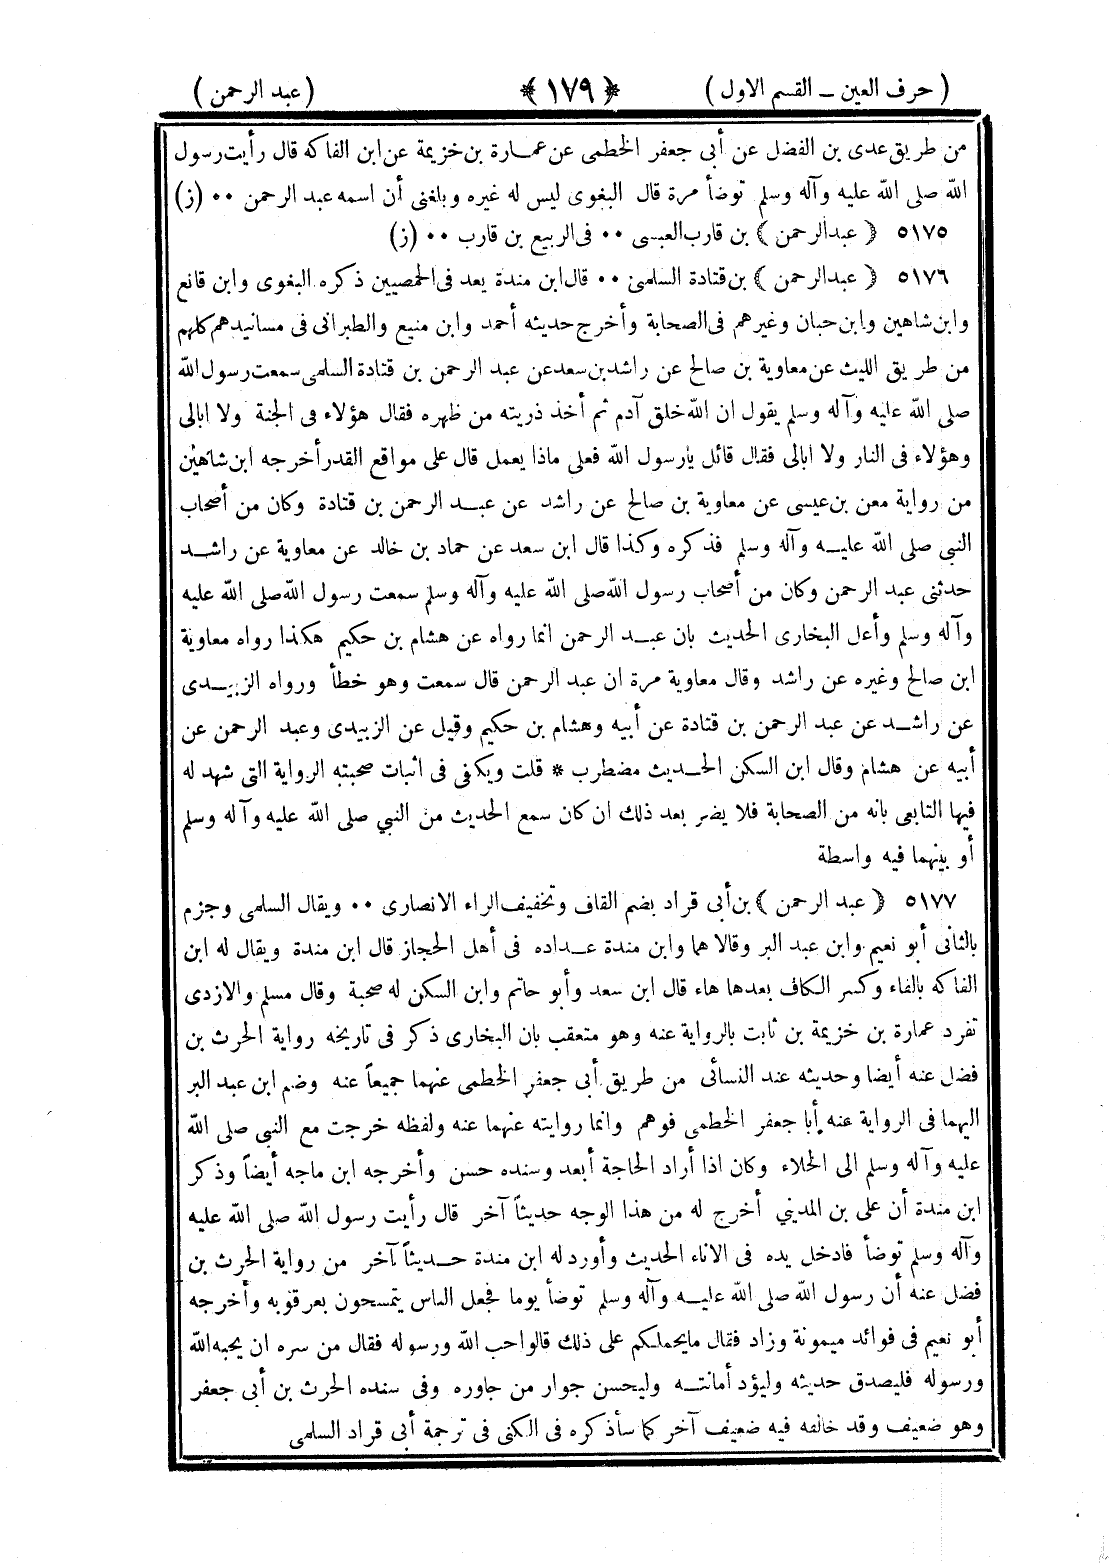 ( حرف العين – القسم الاول ) ﴿ ١٧٩ ﴾ ( عبد الرحمن )
من طريق عدى بن الفضل عن أبى جعفر الخطمى عن عمارة بن خزيمة عن ابن الفاكه قال رأيت رسول
الله صلى الله عليه وآله وسلم توضأ مرة قال البغوى ليس له غيره وبلغنى أن اسمه عبد الرحمن ٠٠ (ز)
٥١٧٥ ﴿ عبدالرحمن ﴾ بن قارب العبسى ٠٠ فى الربيع بن قارب ٠٠ (ز)
٥١٧٦ ﴿ عبدالرحمن ﴾ بن قتادة السلمى ٠٠ قال ابن مندة يعد فى الحمصيين ذكره البغوى وابن قانع
وابن شاهين وابن حبان وغيرهم فى الصحابة وأخرج حديثه أحمد وابن منيع والطبرانى فى مسانيدهم كلهم
من طريق الليث عن معاوية بن صالح عن راشد بن سعد عن عبد الرحمن بن قتادة السلمى سمعت رسول الله
صلى الله عليه وآله وسلم يقول ان الله خلق آدم ثم أخذ ذريته من ظهره فقال هؤلاء فى الجنة ولا ابالى
وهؤلاء فى النار ولا ابالى فقال قائل يارسول الله فعلى ماذا يعمل قال على مواقع القدر أخرجه ابن شاهين
من رواية معن بن عيسى عن معاوية بن صالح عن راشد عن عبد الرحمن بن قتادة وكان من أصحاب
النبي صلى الله عليه وآله وسلم فذكره وكذا قال ابن سعد عن حماد بن خالد عن معاوية عن راشد
حدثنى عبد الرحمن وكان من أصحاب رسول الله صلى الله عليه وآله وسلم سمعت رسول الله صلى الله عليه
وآله وسلم وأعل البخارى الحديث بان عبد الرحمن انما رواه عن هشام بن حكيم هكذا رواه معاوية
ابن صالح وغيره عن راشد وقال معاوية مرة ان عبد الرحمن قال سمعت وهو خطأ ورواه الزبيدى
عن راشد عن عبد الرحمن بن قتادة عن أبيه وهشام بن حكيم وقيل عن الزبيدى وعبد الرحمن عن
أبيه عن هشام وقال ابن السكن الحديث مضطرب * قلت ويكفى فى اثبات صحبته الرواية التى شهد له
فيها التابعى بانه من الصحابة فلا يضر بعد ذلك ان كان سمع الحديث من النبي صلى الله عليه وآله وسلم
أو بينهما فيه واسطة
٥١٧٧ ﴿ عبد الرحمن ﴾ بن أبى قراد بضم القاف وتخفيف الراء الانصارى ٠٠ ويقال السلمى وجزم
بالثانى أبو نعيم وابن عبد البر وقالا هما وابن مندة عداده فى أهل الحجاز قال ابن مندة ويقال له ابن
الفاكه بالفاء وكسر الكاف بعدها هاء قال ابن سعد وأبو حاتم وابن السكن له صحبة وقال مسلم والازدى
تفرد عمارة بن خزيمة بن ثابت بالرواية عنه وهو متعقب بان البخارى ذكر فى تاريخه رواية الحرث بن
فضل عنه أيضا وحديثه عند النسائى من طريق أبى جعفر الخطمى عنهما جميعاً عنه وضم ابن عبد البر
اليهما فى الرواية عنه أبا جعفر الخطمى فوهم وانما روايته عنهما عنه ولفظه خرجت مع النبي صلى الله
عليه وآله وسلم الى الخلاء وكان اذا أراد الحاجة أبعد وسنده حسن وأخرجه ابن ماجه أيضاً وذكر
ابن مندة أن على بن المديني أخرج له من هذا الوجه حديثاً آخر قال رأيت رسول الله صلى الله عليه
وآله وسلم توضأ فادخل يده فى الاناء الحديث وأورد له ابن مندة حديثاً آخر من رواية الحرث بن
فضل عنه أن رسول الله صلى الله عليه وآله وسلم توضأ يوما فجعل الناس يتمسحون بعرقوبه وأخرجه
أبو نعيم فى فوائد ميمونة وزاد فقال مايحملكم على ذلك قالوا حب الله ورسوله فقال من سره ان يحبه الله
ورسوله فليصدق حديثه وليؤد أمانته وليحسن جوار من جاوره وفى سنده الحرث بن أبى جعفر
وهو ضعيف وقد خالفه فيه ضعيف آخر كما سأذكره فى الكنى فى ترجمة أبى قراد السلمى